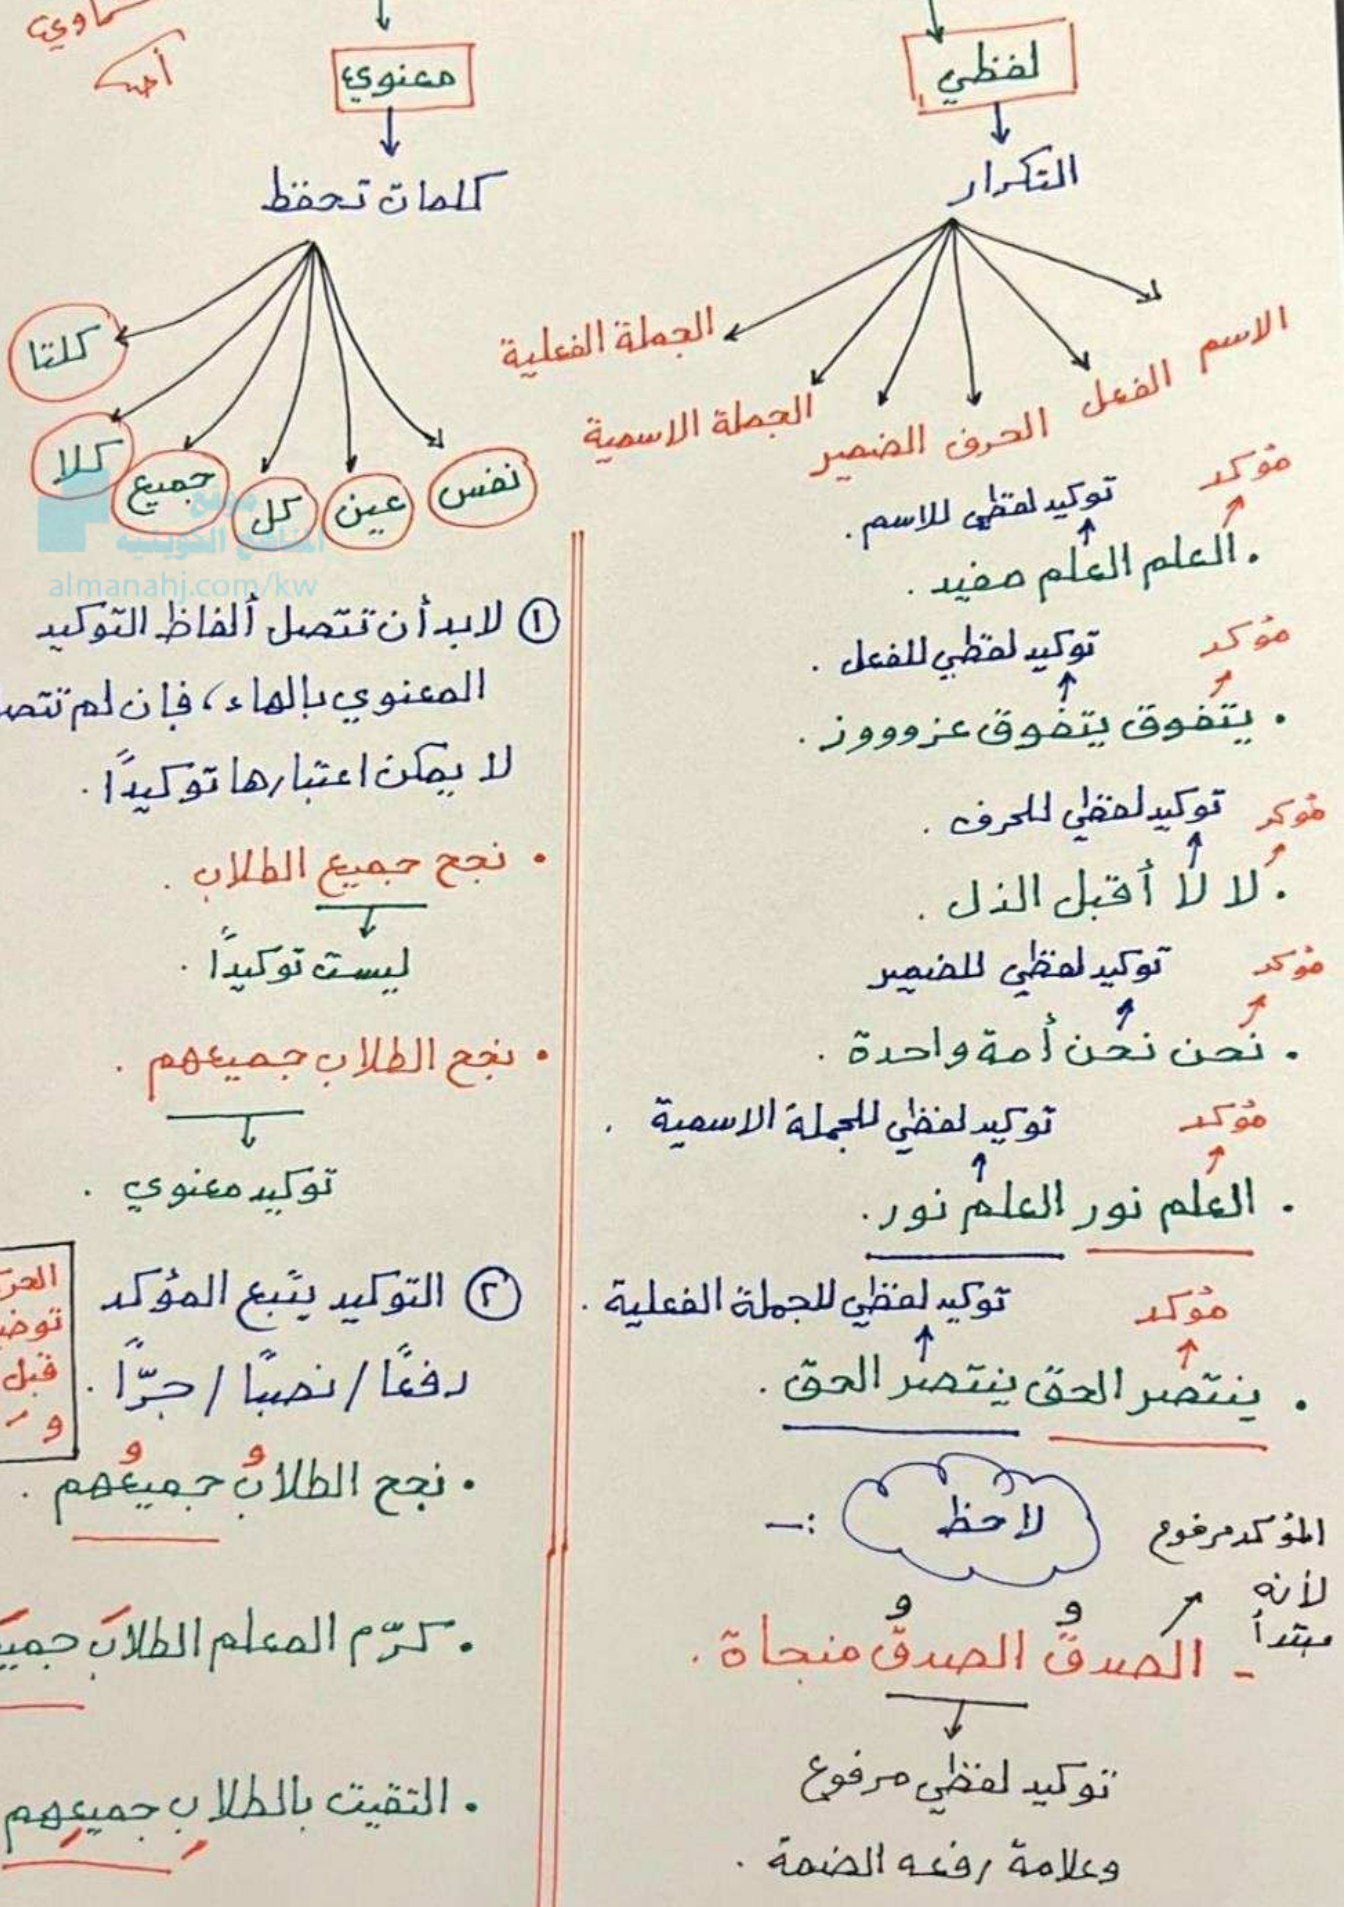 لفظي
التكرار
الاسم
الفعل
الحرف
الضمير
الجملة الاسمية
الجملة الفعلية
مؤكد
توكيد لفظي للاسم.
• العلم العلم مفيد.
مؤكد
توكيد لفظي للفعل.
• يتفوق يتفوق عزوووز.
مؤكد
توكيد لفظي للحرف.
• لا لا أقبل الذل.
مؤكد
توكيد لفظي للضمير
• نحن نحن أمة واحدة.
مؤكد
توكيد لفظي للجملة الاسمية.
• العلم نور العلم نور.
مؤكد
توكيد لفظي للجملة الفعلية.
• ينتصر الحق ينتصر الحق.
لاحظ :-
المؤكد مرفوع
لأنه
مبتدأ
- الصدقُ الصدقُ منجاة.
توكيد لفظي مرفوع
وعلامة رفعه الضمة.
معنوي
كلمات تحفظ
نفس
عين
كل
جميع
كلا
كلتا
موقع
المناهج الكويتية
almanahj.com/kw
١ لابد أن تتصل ألفاظ التوكيد
المعنوي بالهاء، فإن لم تتصل
لا يمكن اعتبارها توكيدًا.
• نجح جميع الطلاب.
ليست توكيدًا.
• نجح الطلاب جميعهم.
توكيد معنوي.
٢ التوكيد يتبع المؤكد
رفعًا / نصبًا / جرًّا.
قبل
• نجح الطلابُ جميعُهم.
• كرّم المعلم الطلابَ
• التقيت بالطلابِ جميعِهم